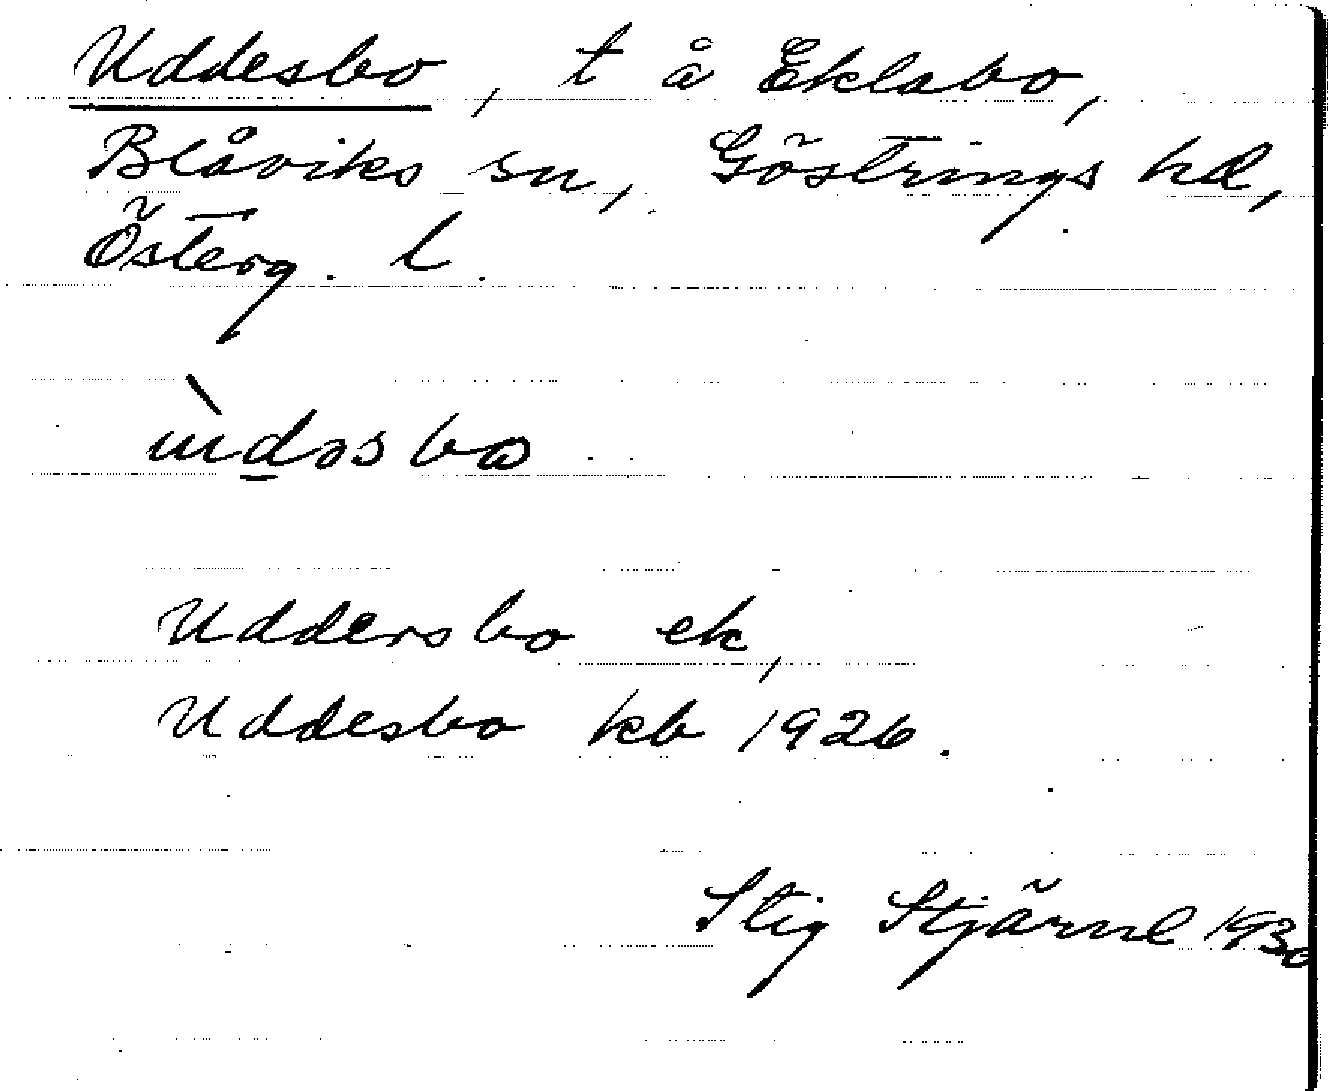 Uddesbo, t å Eklabo,
Blåviks sn, Göstrings hd,
Österg. l.
Uddersbo ek,
Uddesbo kb 1926.
Stig Stjärne 1930